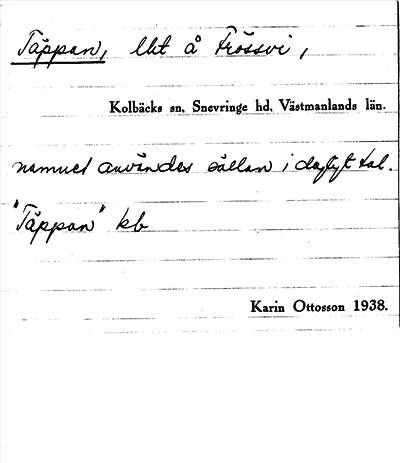 Täppan, lht å Frössvi,
Kolbäcks sn, Snevringe hd, Västmanlands län.
namnet användes sällan i dagligt tal.
"Täppan" kb
Karin Ottosson 1938.